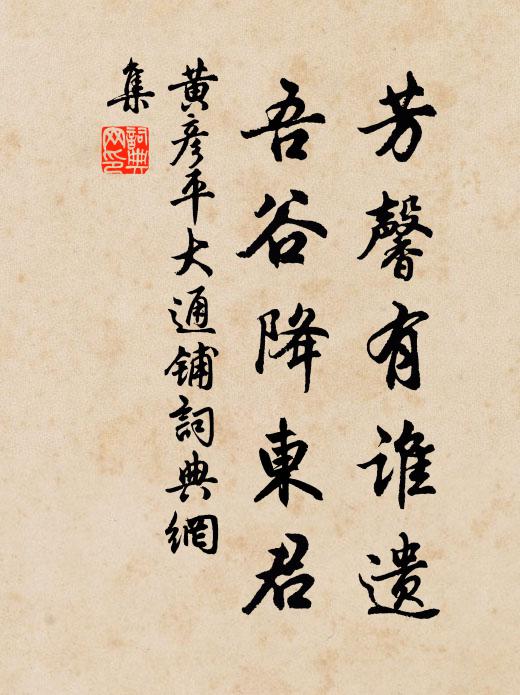 芳馨有谁遗
吾谷降東君
黄彦平大通铺詞典網
集
詞典网印